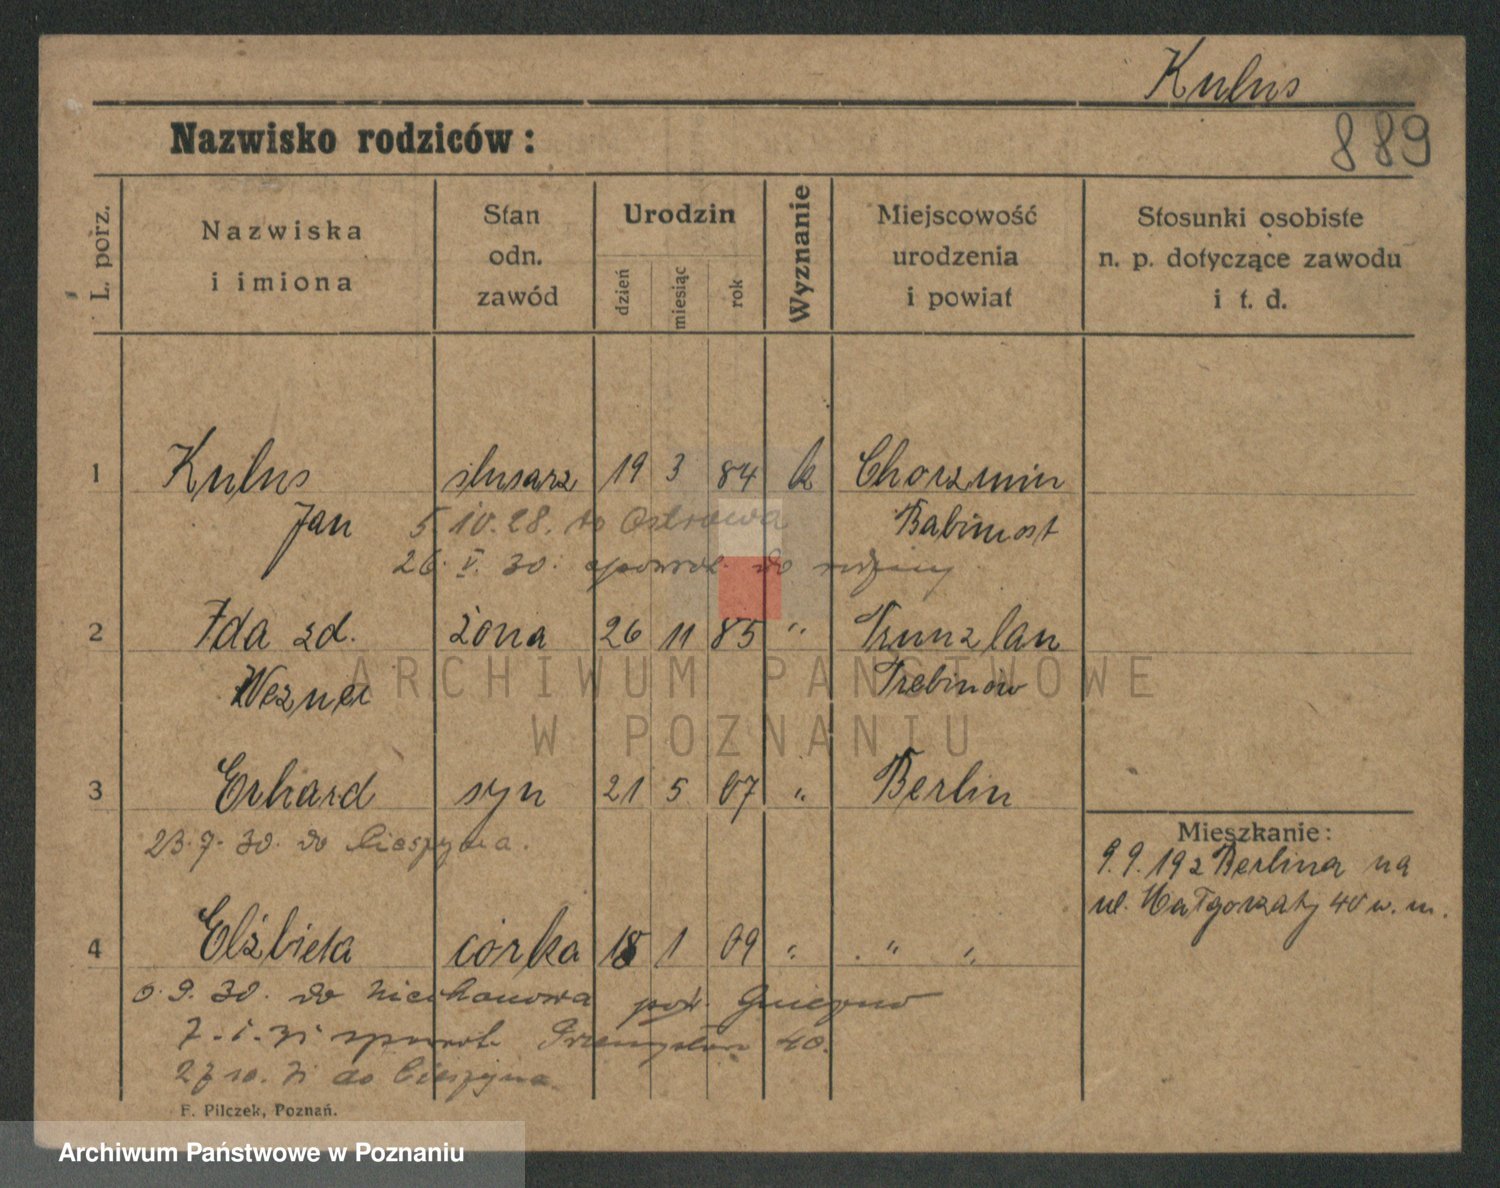 Kulus
889
Nazwisko rodziców:
L. porz.
Nazwiska
i imiona
Stan
odn.
zawód
Urodzin
dzień
miesiąc
rok
Wyznanie
Miejscowość
urodzenia
i powiat
Stosunki osobiste
n. p. dotyczące zawodu
i t. d.
1 Kulus ślusarz 19 3 84 k Chorzmin
Jan 5 10. 28. do Ostrowa Babimost
26. V. 30. spowrot. do rodziny
2 Ida zd. żona 26 11 85 "
Wezner Trebinów
ARCHIWUM PAŃSTWOWE
W POZNANIU
3 Erhard syn 21 5 07 " Berlin
23. 7. 30. do Cieszyna.
Mieszkanie:
9. 9. 19 z Berlina na
ul. Małgorzaty 40 w. m.
4 Elżbieta córka 18 1 09 " " "
9. 30. do Niechanowa pow. Gniezno
7. 1. 31 spowrot. 40.
27 10. 31 do Cieszyna.
F. Pilczek, Poznań.
Archiwum Państwowe w Poznaniu